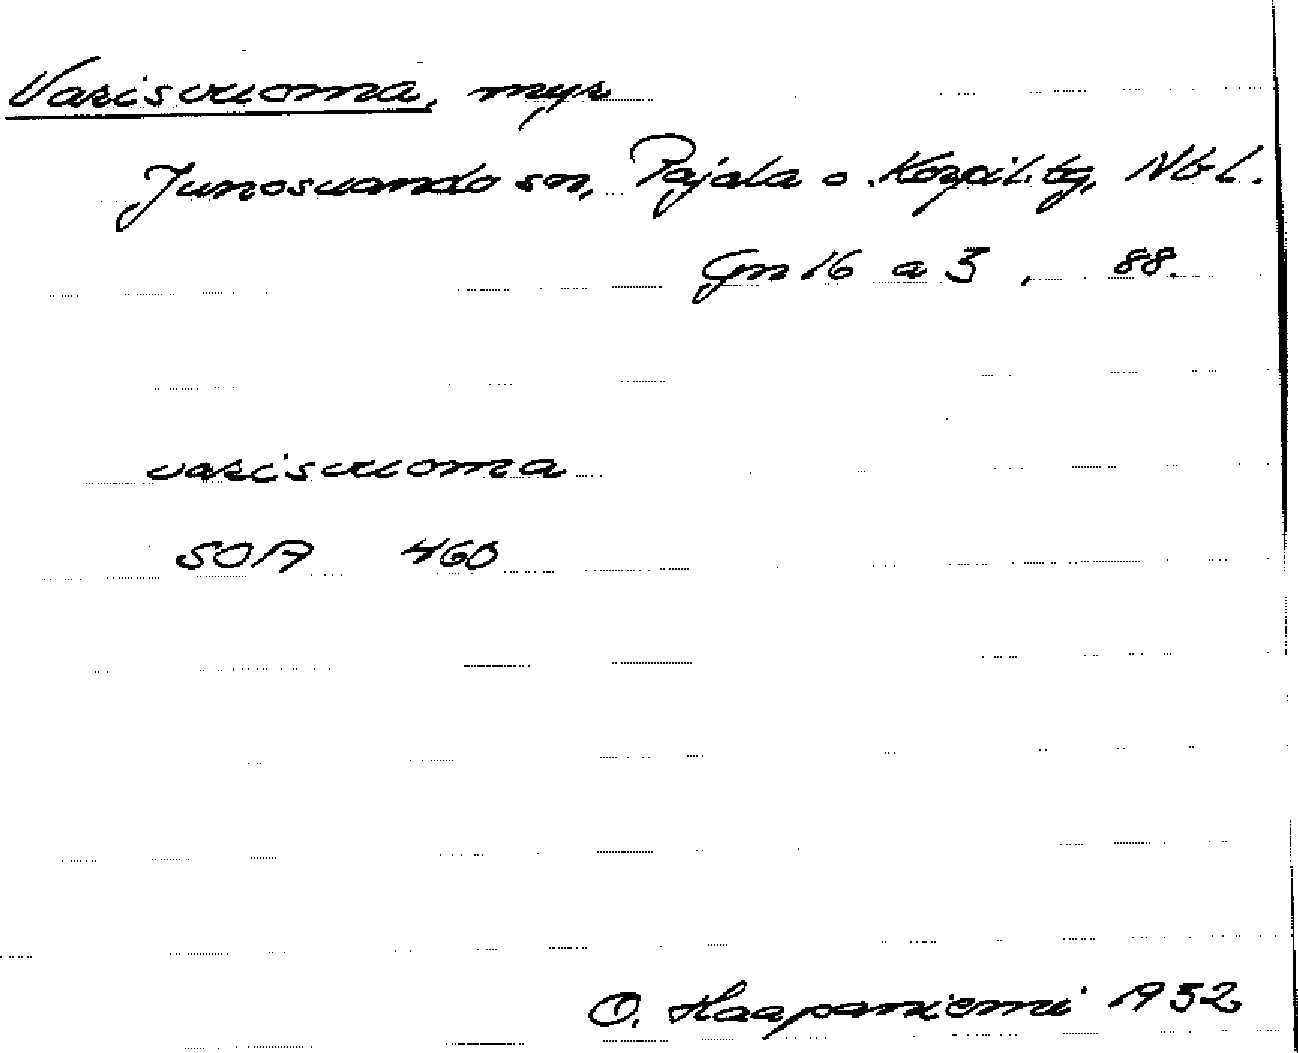 Varisvuoma, myr
Junosuando sn, Pajala o. Korpil. tg, Nb L.
Gn 16 a 3, 88.
varisvuoma
SOA 460
O. Haapaniemi 1932